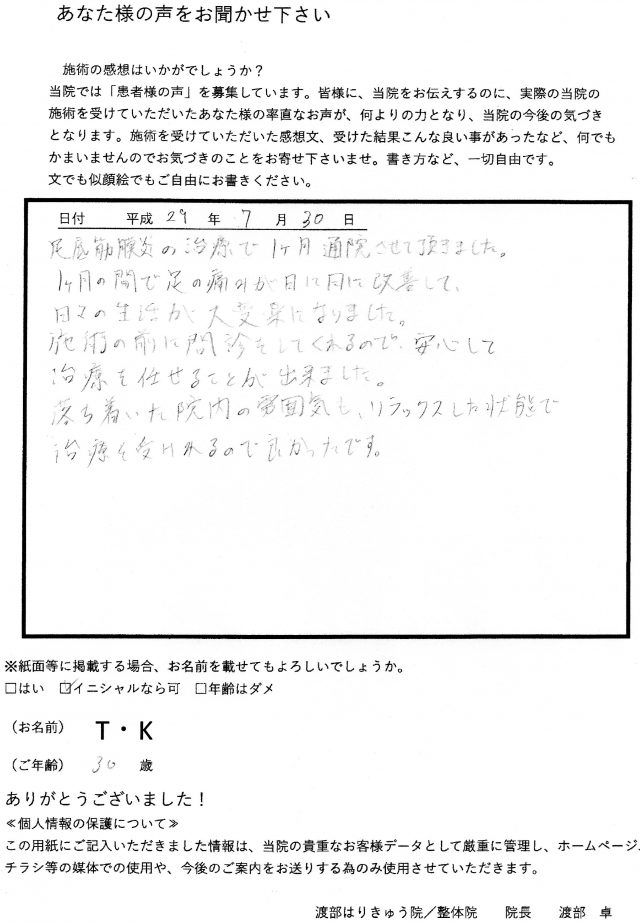 あなた様の声をお聞かせ下さい
施術の感想はいかがでしょうか？
当院では「患者様の声」を募集しています。皆様に、当院をお伝えするのに、実際の当院の
施術を受けていただいたあなた様の率直なお声が、何よりの力となり、当院の今後の気づき
となります。施術を受けていただいた感想文、受けた結果こんな良い事があったなど、何でも
かまいませんのでお気づきのことをお寄せ下さいませ。書き方など、一切自由です。
文でも似顔絵でもご自由にお書きください。
日付　平成 29 年 7 月 30 日
足底筋膜炎の治療で1ヶ月通院させて頂きました。
1ヶ月の間で足の痛みが日に日に改善して、
日々の生活が大変楽になりました。
施術の前に問診をしてくれるので、安心して
治療を任せることが出来ました。
落ち着いた院内の雰囲気も、リラックスした状態で
治療を受けれるので良かったです。
※紙面等に掲載する場合、お名前を載せてもよろしいでしょうか。
□はい ☑イニシャルなら可 □年齢はダメ
（お名前） T・K
（ご年齢） 30 歳
ありがとうございました！
≪個人情報の保護について≫
この用紙にご記入いただきました情報は、当院の貴重なお客様データとして厳重に管理し、ホームページ、
チラシ等の媒体での使用や、今後のご案内をお送りする為のみ使用させていただきます。
渡部はりきゅう院／整体院　院長　渡部　卓